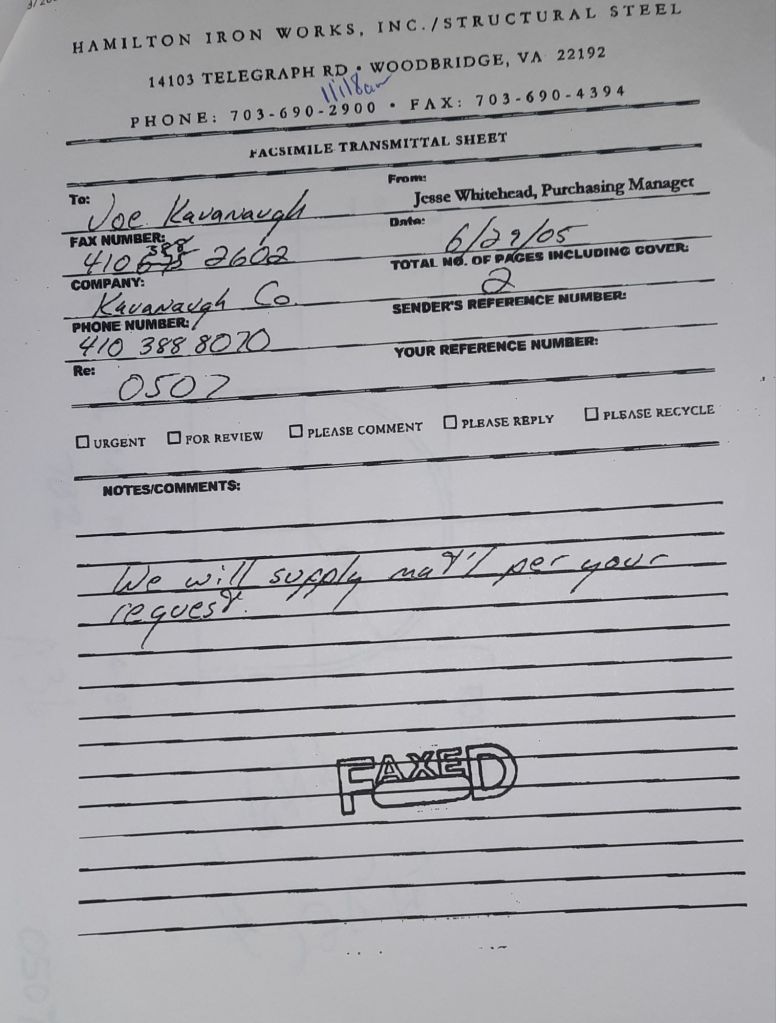 HAMILTON IRON WORKS, INC./STRUCTURAL STEEL
14103 TELEGRAPH RD • WOODBRIDGE, VA 22192
11:18am
PHONE: 703-690-2900 • FAX: 703-690-4394
FACSIMILE TRANSMITTAL SHEET
To: Joe Kavanaugh
From: Jesse Whitehead, Purchasing Manager
FAX NUMBER: 410 388 2602
Date: 6/29/05
COMPANY: Kavanaugh Co.
TOTAL NO. OF PAGES INCLUDING COVER: 2
PHONE NUMBER: 410 388 8070
SENDER'S REFERENCE NUMBER:
Re: 0507
YOUR REFERENCE NUMBER:
☐ URGENT ☐ FOR REVIEW ☐ PLEASE COMMENT ☐ PLEASE REPLY ☐ PLEASE RECYCLE
NOTES/COMMENTS:
We will supply mat'l per your
request.
FAXED